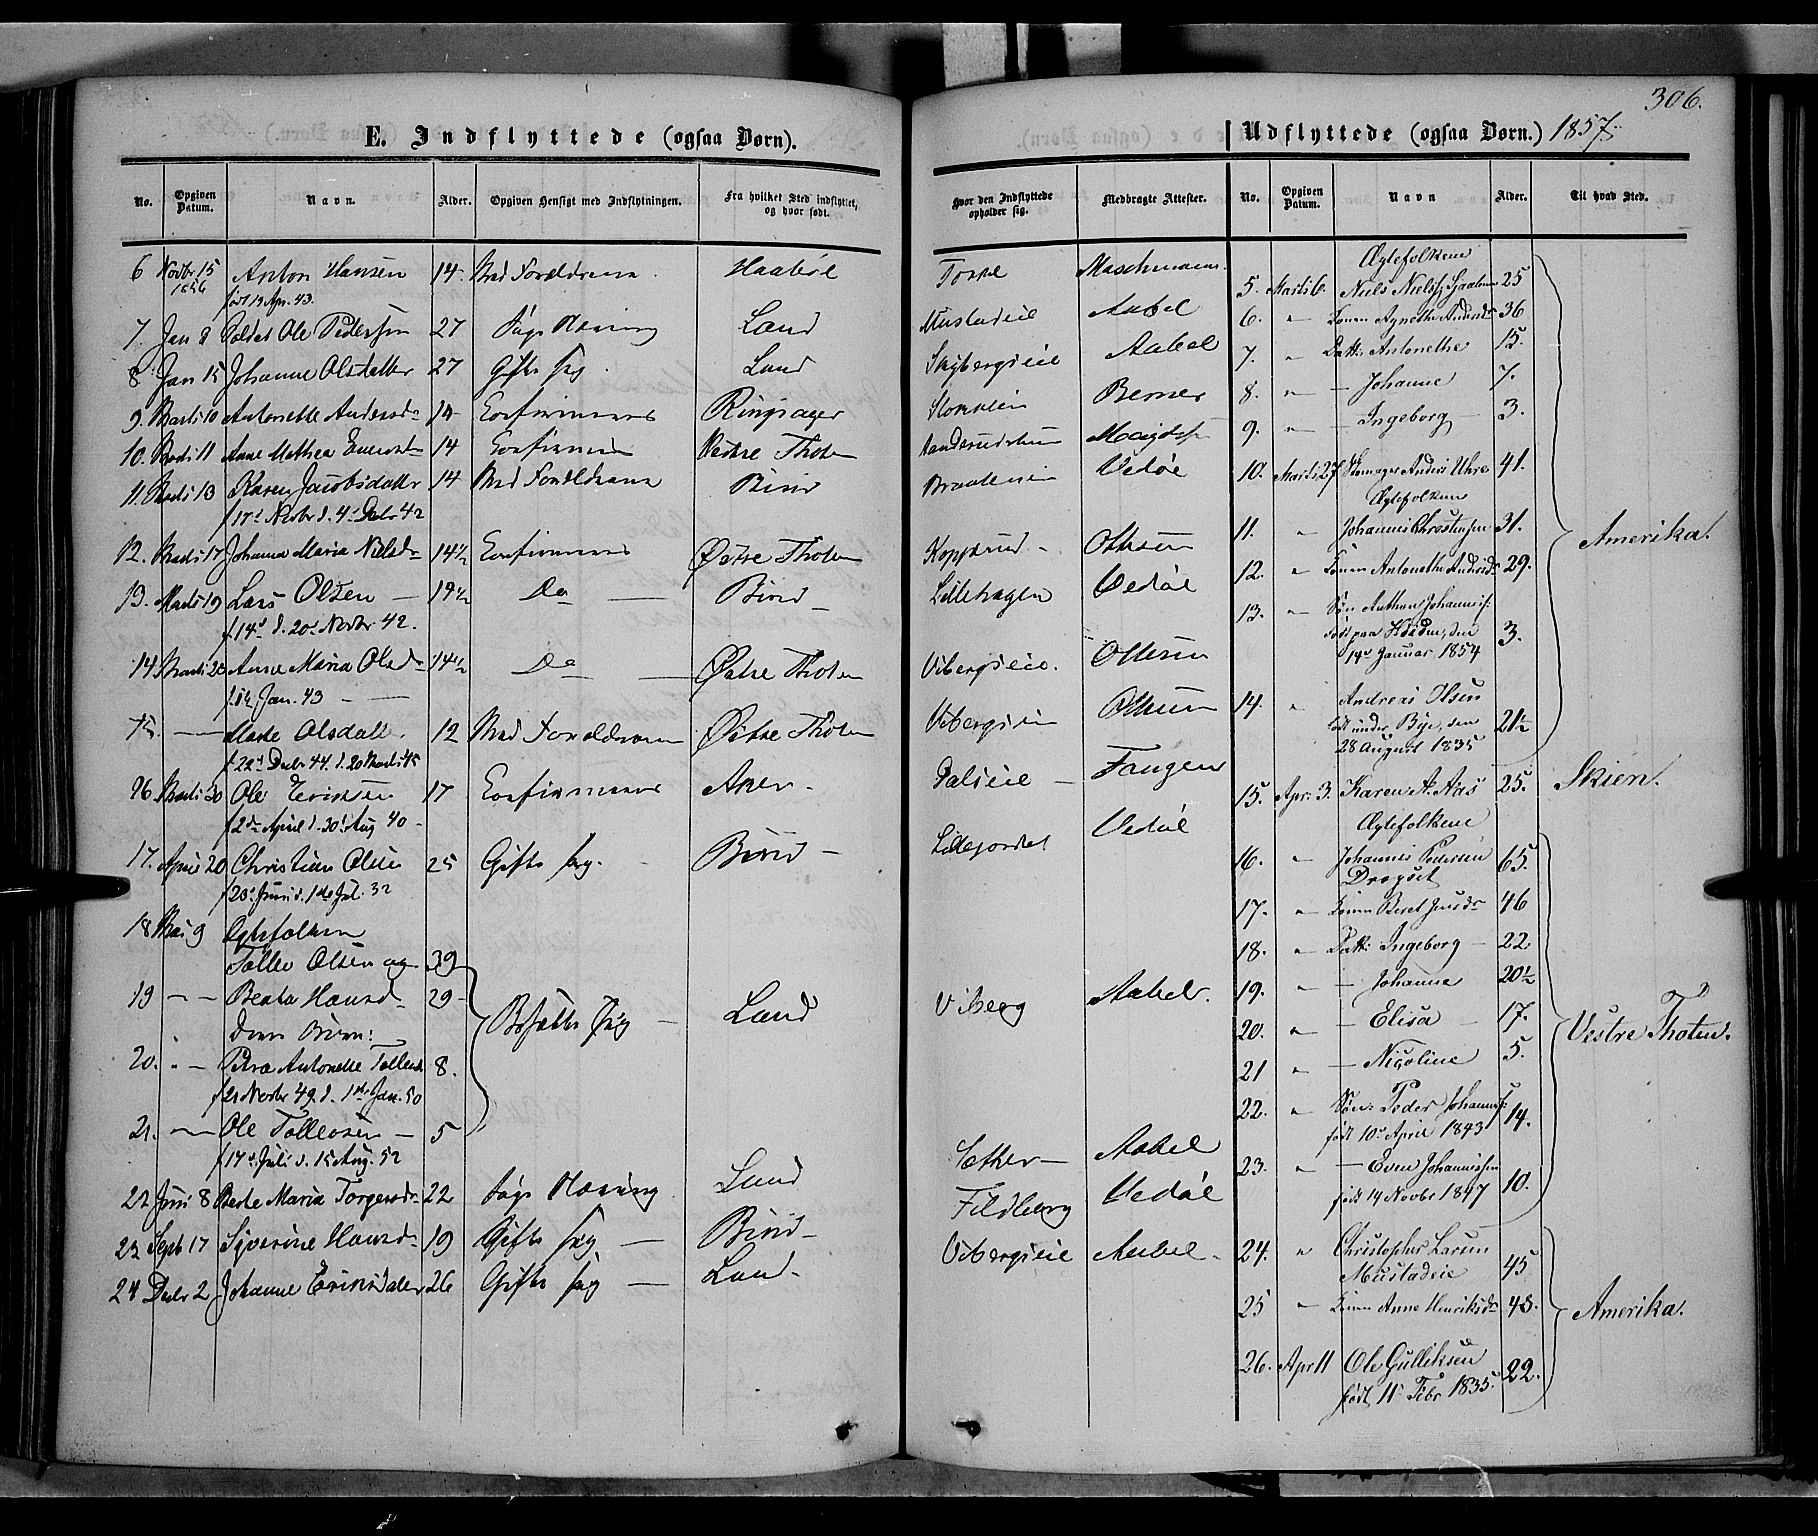 306.
E. Indflyttede (ogsaa Børn).
Udflyttede (ogsaa Børn.) 1857.
No. Opgiven Datum. Navn. Alder. Opgiven Hensigt med Indflytningen. Fra hvilket Sted indflyttet, og hvor født.
Hvor den Indflyttede opholder sig. Medbragte Attester. No. Opgiven Datum. Navn Alder. Til hvad Sted.
6 Novbr 15 1856 Anton Hansen 14 Med Forældrene Haabøl
født 19 Apr. 43.
7. Jan 8 Soldat Ole Pedersen 27 Søge Næring Land
8 Jan 15 Johanne Olsdatter 27 Gifte sig. Land
9. Marts 10 Antonette Andersd. 14 Confirmeres Ringsager
10. Marts 11 Anne Mathea 14 Confirmeres Vestre Thoten
11. Marts 13 Karen Jacobsdatter 14 Med Forældrene Birid
f 17d Novbr d. 4d Decbr 42
12. Marts 17 Johanne Maria Nielsd. 14½ Confirmeres Østre Thoten
13. Marts 19 Lars Olsen 14½ Do Birid
f. 14d d. 20d Novbr 42.
14 Marts 20 Anne Maria Olsd. 14½ Do Østre Thoten
f. 14 Jan. 43
15. Marte Olsdatter 12 Med Forældrene Østre Thoten
f. 22d Decbr 44. d. 20 Marts 45
16 Marts 30 Ole Eriksen 17 Confirmeres Aker
f 2den April d. 30d Aug 40
17. April 20 Christian Olsen 25 Gifte sig. Birid
f 23d Juni d. 1ste Jul. 32
18 Mai 9 Ægtefolkene
Tollev Olsen og 39
19 Beata Hansd. 29
Deres Børn:
Bosætte sig Land
20. Petra Antonette Tollevsd. 8.
f 21 Novbr 49 d. 1ste Jan. 50
21. Ole Tollevsen 5
f 17d Juli d. 15 Aug. 52
22 Juni 8 Berte Maria Torgersd. 22 Søge Næring Land
23 Sept 17 Syverine Hansd. 19 Gifte sig Birid
24 Decbr 2 Johanne Eriksdatter 26 Gifte sig Land
Maschmann.
Mustadeie Aabel
Skybergseie Aabel
Berner
Vedøe
Braateneie
Kopperud Ottesen
Lillehagen Vedøe
Vibergseie. Ottesen
Vibergseie Ottesen
Dalseie Fangen
Lillejordet Vedøe
Viberg Aabel
Sæther Aabel
Fildberg Vedøe
Vibergseie Aabel
Ægtefolkene
5. Marts 6. Niels Niels. 25
6. " Konen Agnethe Andersdr 36
7. " Datt: Antonethe 15.
8. " Johanne 7.
9. " Ingeborg 3.
10. Marts 27 Anders Uhre 41.
Ægtefolkene
11. " Johannes Christensen 31.
12. " Konen Antonethe Andersdr 29.
13. " Søn Anthon Johannes:
født paa den
14de Januar 1854 3.
14. " Andreas Olsen
født under Bye, den
28 August 1835 21½
Amerika.
15. Apr: 3. Karen A. Aas 25. Skien.
Ægtefolkene
16. " Johannes Pedersen
Dragset 65.
17. " Konen Beret Jensdr 46
18. " Datt: Ingeborg 22
19. " Johanne 20½
20. " Elisa 17.
21 " Nicoline 5.
22. " Søn: Peder Johannes:
født 10d April 1843 14.
23. " Even Johannessen
født 14 Novbr 1847 10.
Vestre Thoten.
24. " Christopher Larsen
Mustadeie 45
25 " Konen Anne Henriksdr 48.
26. Apr 11 Ole Gulliksen
født 11 Febr 1835. 22.
Amerika.